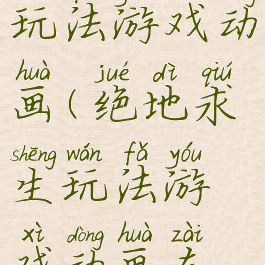 玩法游戏动
huà jué dì qiú
画(绝地求
shēng wán fǎ yóu
生玩法游
xì dòng huà zài
戏动画在